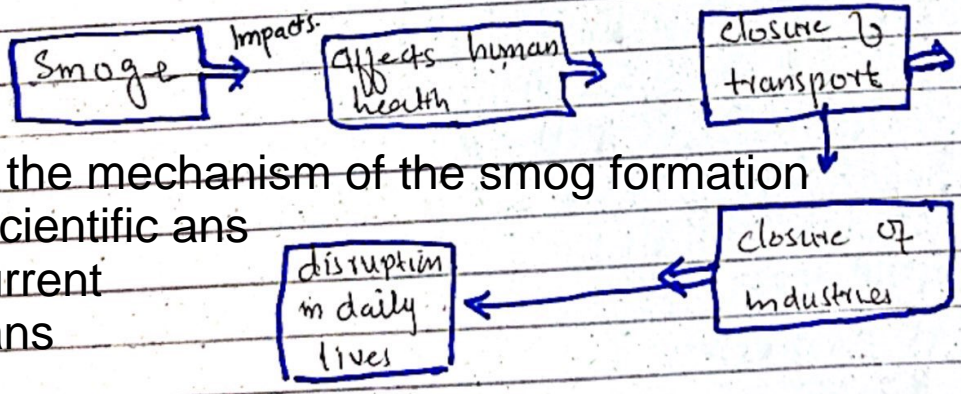 Smoge
Impacts.
affects human
health
closure of
transport
the mechanism of the smog formation
cientific ans
rrent
ns
closure of
industries
disruption
in daily
lives